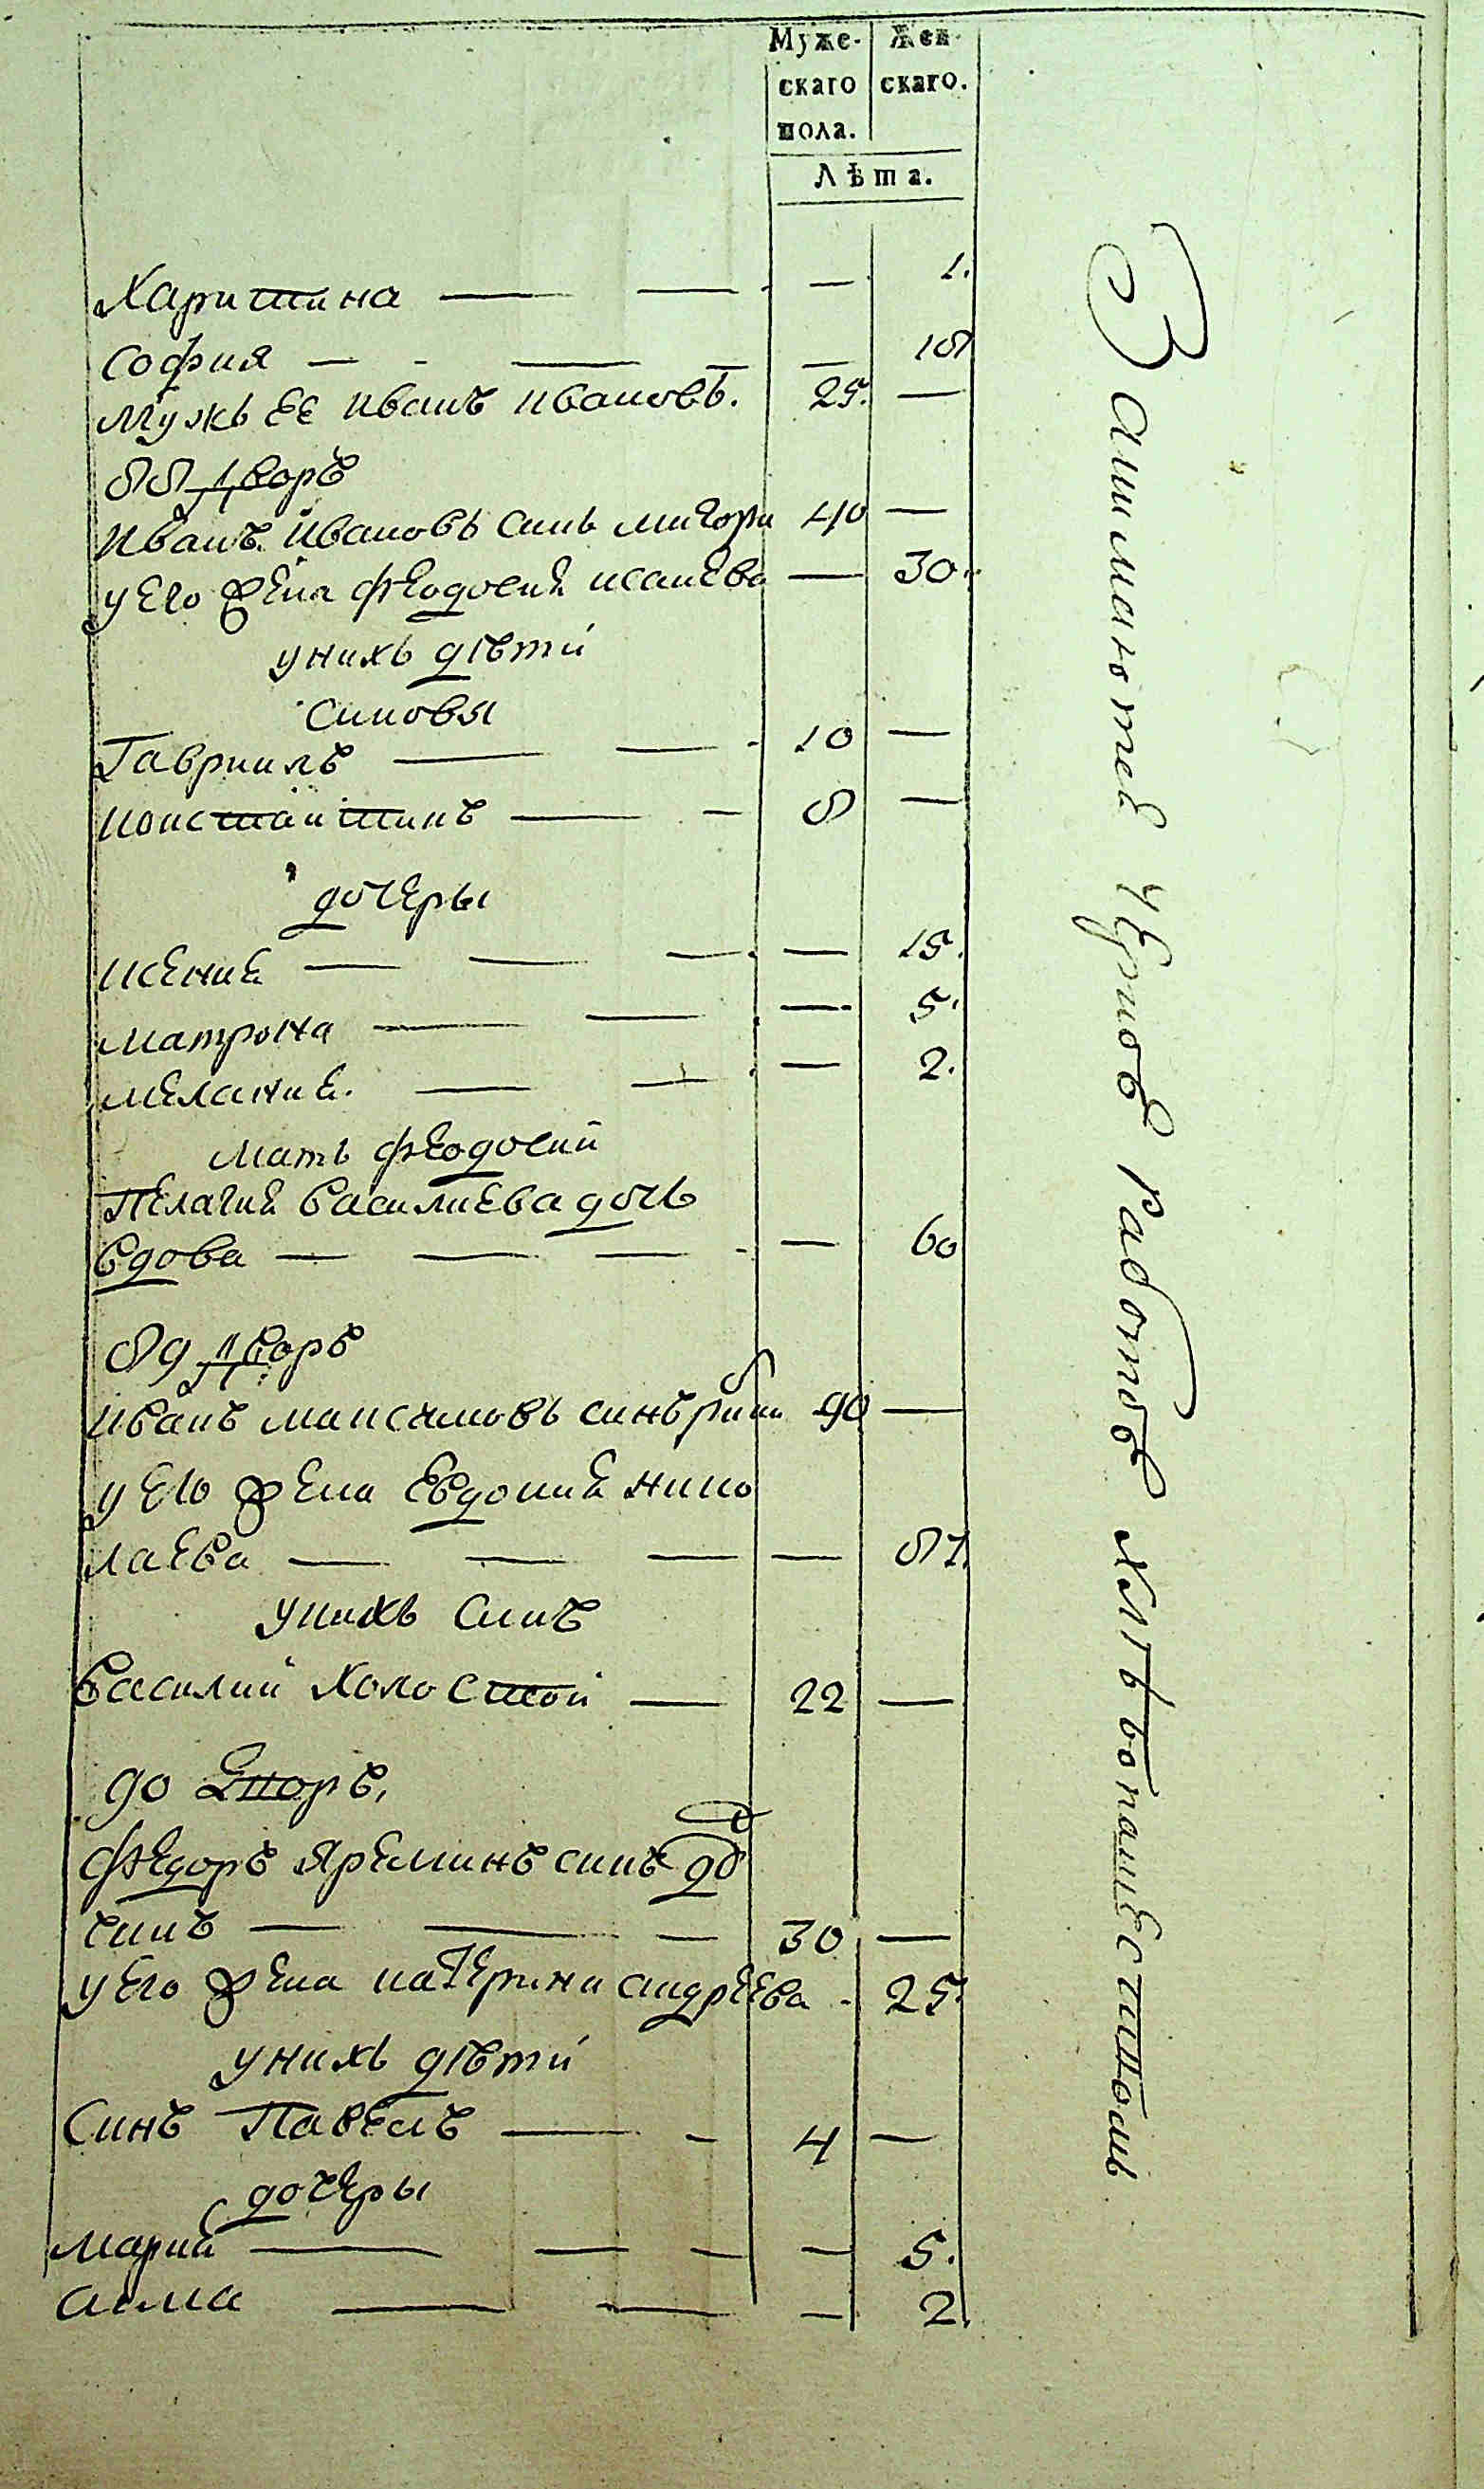 Муже-
скаго
пола.
Жен-
скаго.
Лѣта.
Харитина — — — 1.
София — — — 18
Мужь ее Иванъ Ивановъ. 25. —
88 Дворъ
Иванъ Ивановъ синь 40 —
у его жена Феодосия Исаиева — 30.
у нихъ дѣти
Синовья
Гавриилъ — — 10 —
Константинъ — — 8 —
дочеры
Ксения — — — — 15.
Матрона — — — 5.
Мелания. — — — 2.
Мать Феодосии
Пелагия Василиева дочь
Вдова — — — — 60
89 Дворъ
Иванъ Максимовъ синъ 90 —
у его жена Евдокия Нико
лаева — — — — 87.
у нихъ синъ
Василий Холостой — 22 —
90 Дворъ,
Федоръ Яреминъ синъ
— — — 30 —
у его жена Катерина Андреева 25.
у нихъ дѣти
Синъ Павелъ — — 4 —
дочеры
Мария — — — — 5.
Анна — — — 2
Занимаются черновъ работовъ хлѣбопашествомъ